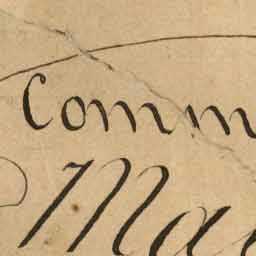 Comm
Ma